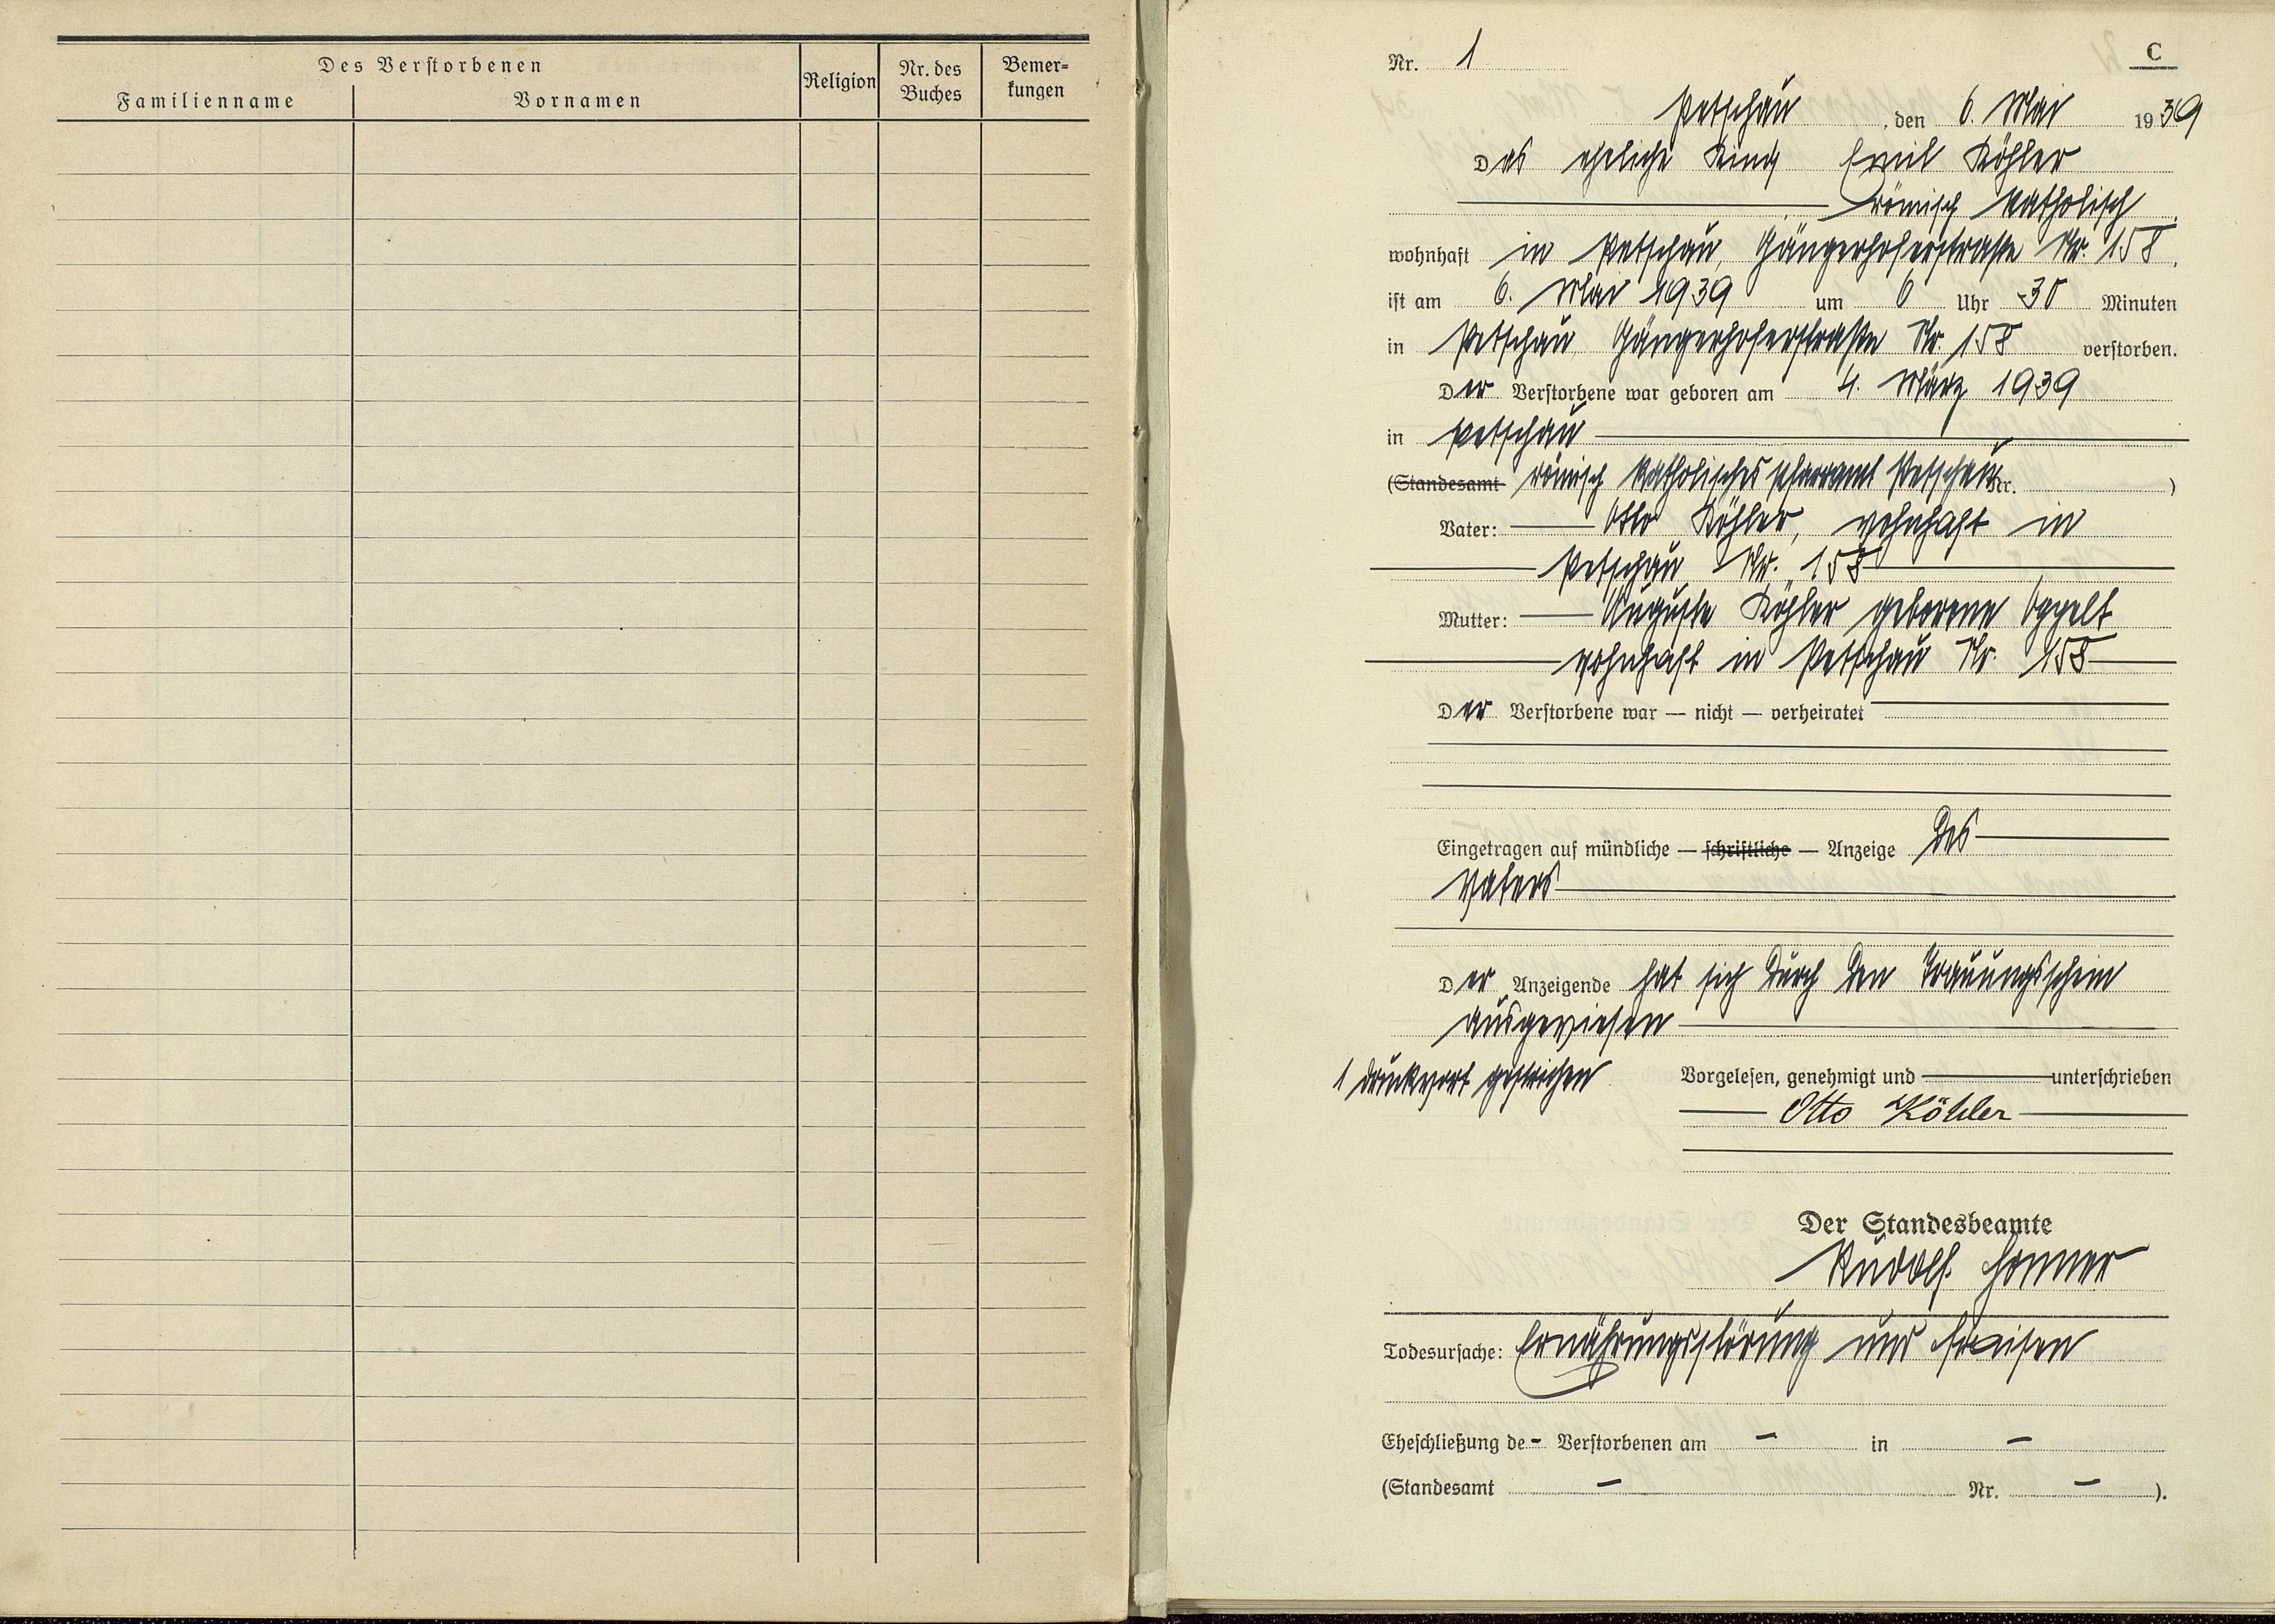 Des Verstorbenen
Familienname
Vornamen
Religion
Nr. des
Buches
Bemer-
kungen
C
Nr. 1
Petschau, den 6. Mai 1939
Das eheliche Kind Emil Köhler
römisch katholisch
wohnhaft in Petschau, Gängerhoferstraße Nr. 158,
ist am 6. Mai 1939 um 6 Uhr 30 Minuten
in Petschau Gängerhoferstraße Nr. 158 verstorben.
Der Verstorbene war geboren am 4. März 1939
in Petschau
(Standesamt römisch katholisches Pfarramt Petschau Nr. )
Vater: Otto Köhler, wohnhaft in
Petschau Nr. 158
Mutter: Auguste Köhler geborene Oppelt
wohnhaft in Petschau Nr. 158
Der Verstorbene war — nicht — verheiratet
Eingetragen auf mündliche — schriftliche — Anzeige des
Vaters
Der Anzeigende hat sich durch den Trauungsschein
ausgewiesen
1 Druckwort gestrichen
Vorgelesen, genehmigt und unterschrieben
Otto Köhler
Der Standesbeamte
Rudolf
Todesursache: Ernährungsstörung und Fraisen
Eheschließung de - Verstorbenen am - in -
(Standesamt - Nr. - ).